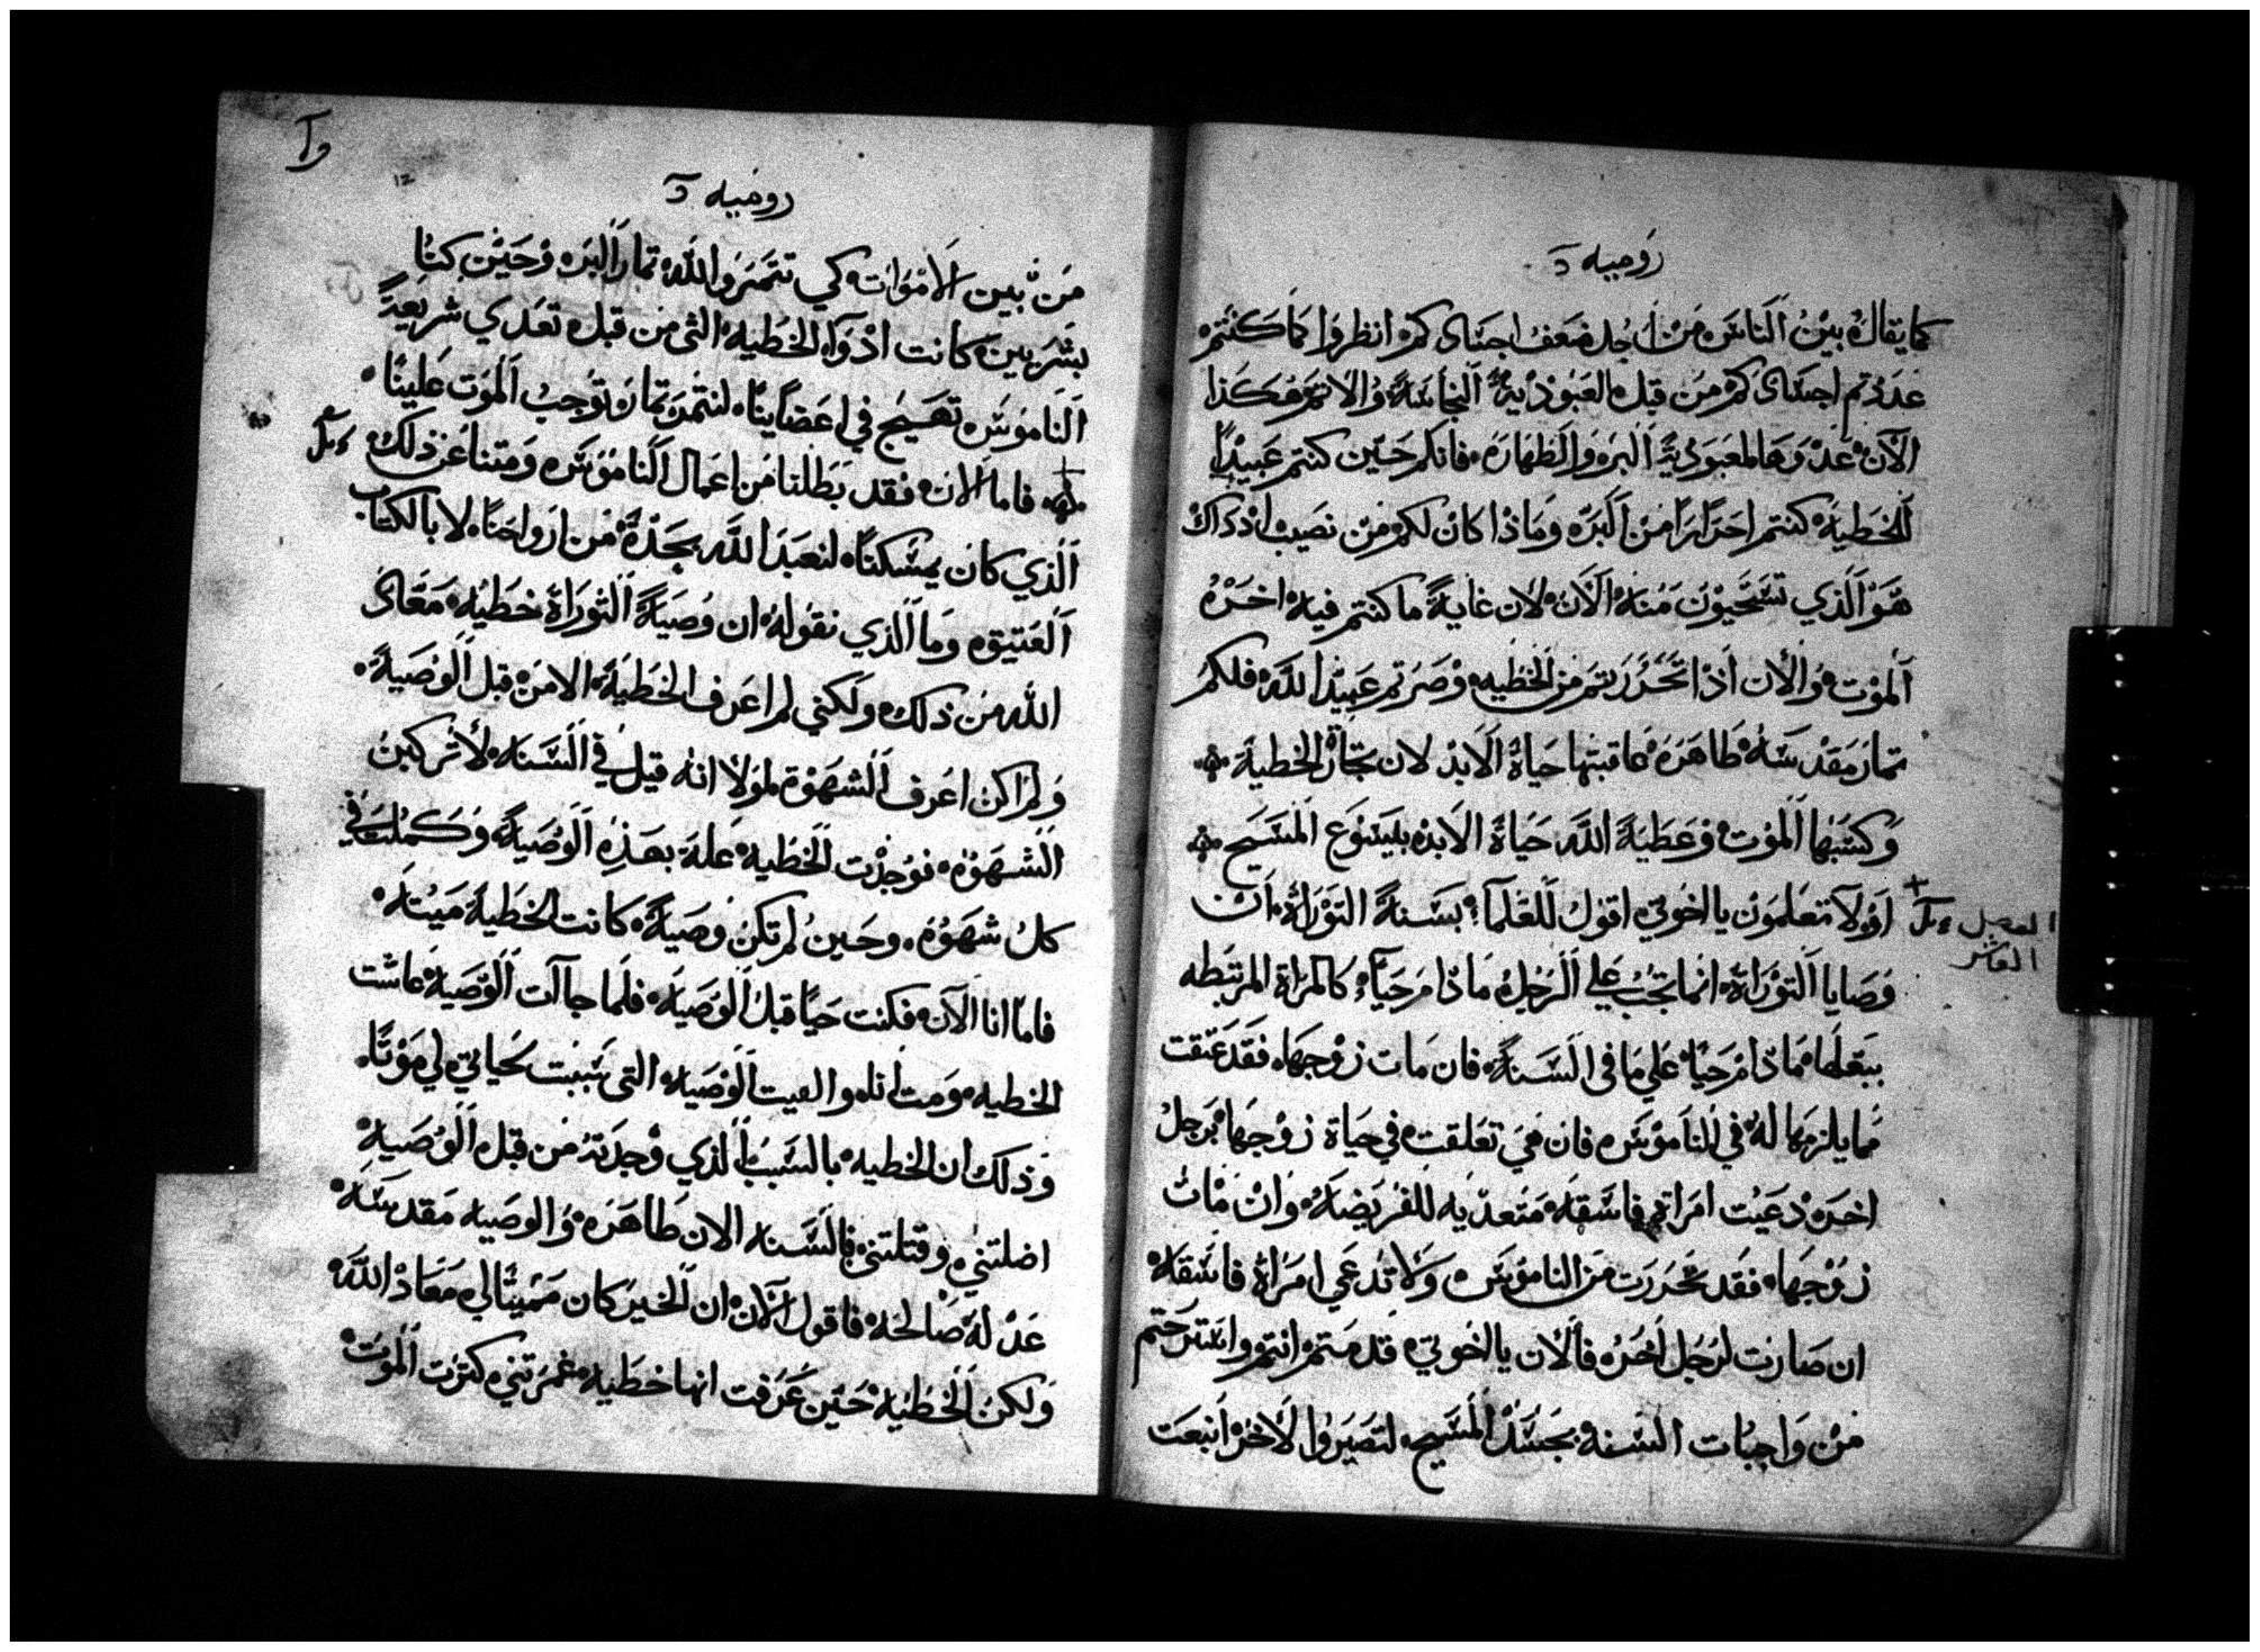 روميه
كما يقال بين الناس من اجل ضعف اجسادكم انظروا كما كنتم
عددتم اجسادكم من قبل العبودية النجاسة والاثم فكذا
الآن عدوها لعبودية البر والطهارة فانكم حين كنتم عبيدا
للخطية كنتم احرارا من البر وماذا كان لكم من نصيب اذ ذاك
هو الذي تستحيون منه الآن لان غاية ما كنتم فيه اخره
الموت والان اذا تحررتم من الخطيه وصرتم عبيدا لله فلكم
تمار مقدسة طاهرة عاقبتها حياة الابد لان تجارة الخطية
وكسبها الموت وعطية الله حياة الابد بيسوع المسيح
اولا تعلمون يا اخوتي اقول للعلما بسنة التوراة ان
الفصل
العاشر
وصايا التوراة انما تجب علي الرجل مادام حيا كالمراة المرتبطه
ببعلها مادام حيا علي ما في السنة فان مات زوجها فقد عتقت
مما يلزمها له في الناموس فان هي تعلقت في حياة زوجها برجل
اخر دعيت امراة فاسقة متعديه للفريضة وان مات
زوجها فقد تحررت من الناموس ولا تدعي امراة فاسقة
ان صارت لرجل اخر فالان يا اخوتي قد متم انتم واسترحتم
من واجبات السنة بجسد المسيح لتصيروا لاخر انبعت
روميه
من بين الاموات كي تتمروا لله تمار البر وحين كنا
بشريين كانت ادوآ الخطيه التي من قبل تعدي شريعة
الناموس تهيج في اعضاينا لنتمر تمار توجب الموت علينا
فاما الان فقد بطلنا من اعمال الناموس ومتنا عن ذلك
الذي كان يمسكنا لنعبد الله بجدة من ارواحنا لا بالكتاب
العتيق وما الذي نقوله ان وصية التوراة خطيه معاذ
الله من ذلك ولكني لم اعرف الخطية الا من قبل الوصية
ولم اكن اعرف الشهوة لولا انه قيل في السنه لا تركبن
الشهوة فوجدت الخطيه علة بهذه الوصية وكملت في
كل شهوة وحين لم تكن وصية كانت الخطية ميته
فاما انا الآن فكنت حيا قبل الوصية فلما جاآت الوصية عاشت
الخطيه ومت انا والفيت الوصية التي سببت لحياتي لي موتا
وذلك ان الخطيه بالسبب الذي وجدته من قبل الوصية
اضلتني وقتلتني فالسنه الان طاهره والوصيه مقدسة
عدلة صالحة فاقول الآن ان الخير كان مميتا لي معاذ الله
ولكن الخطية حين عرفت انها خطيه غمرتني كترت الموت